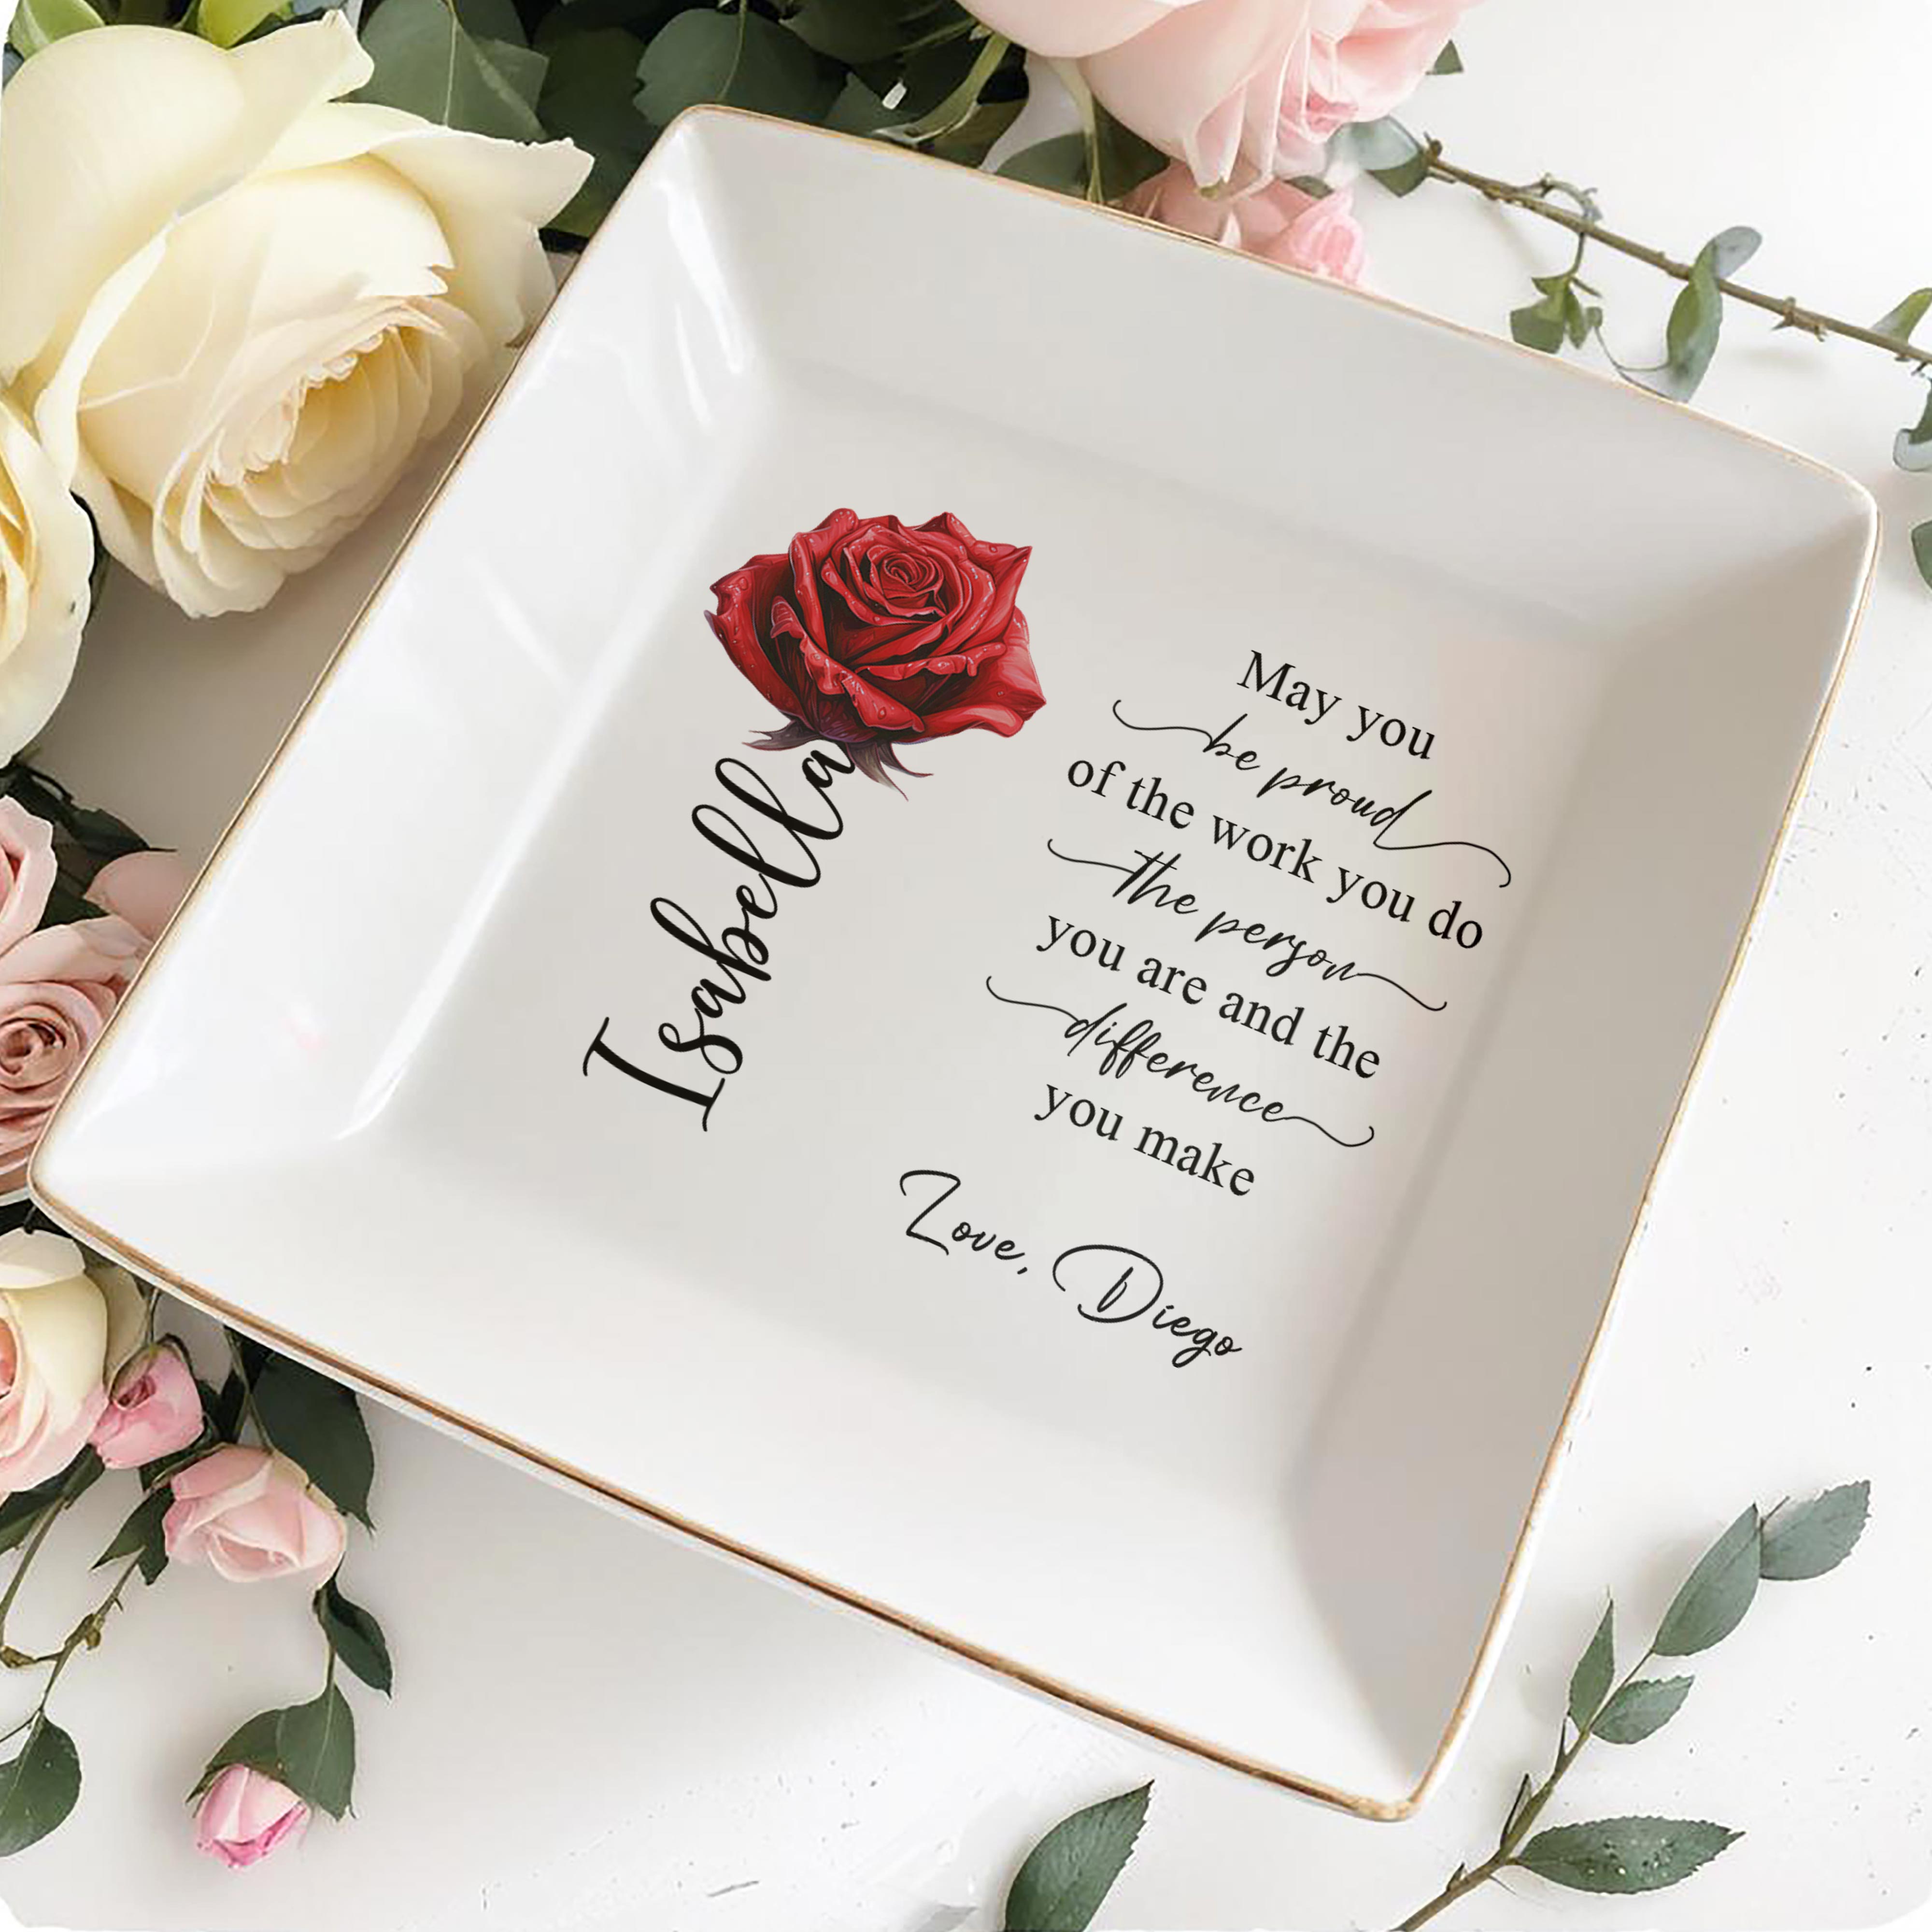 Isabella
May you
be proud
of the work you do
the person
you are and the
difference
you make
Love, Diego